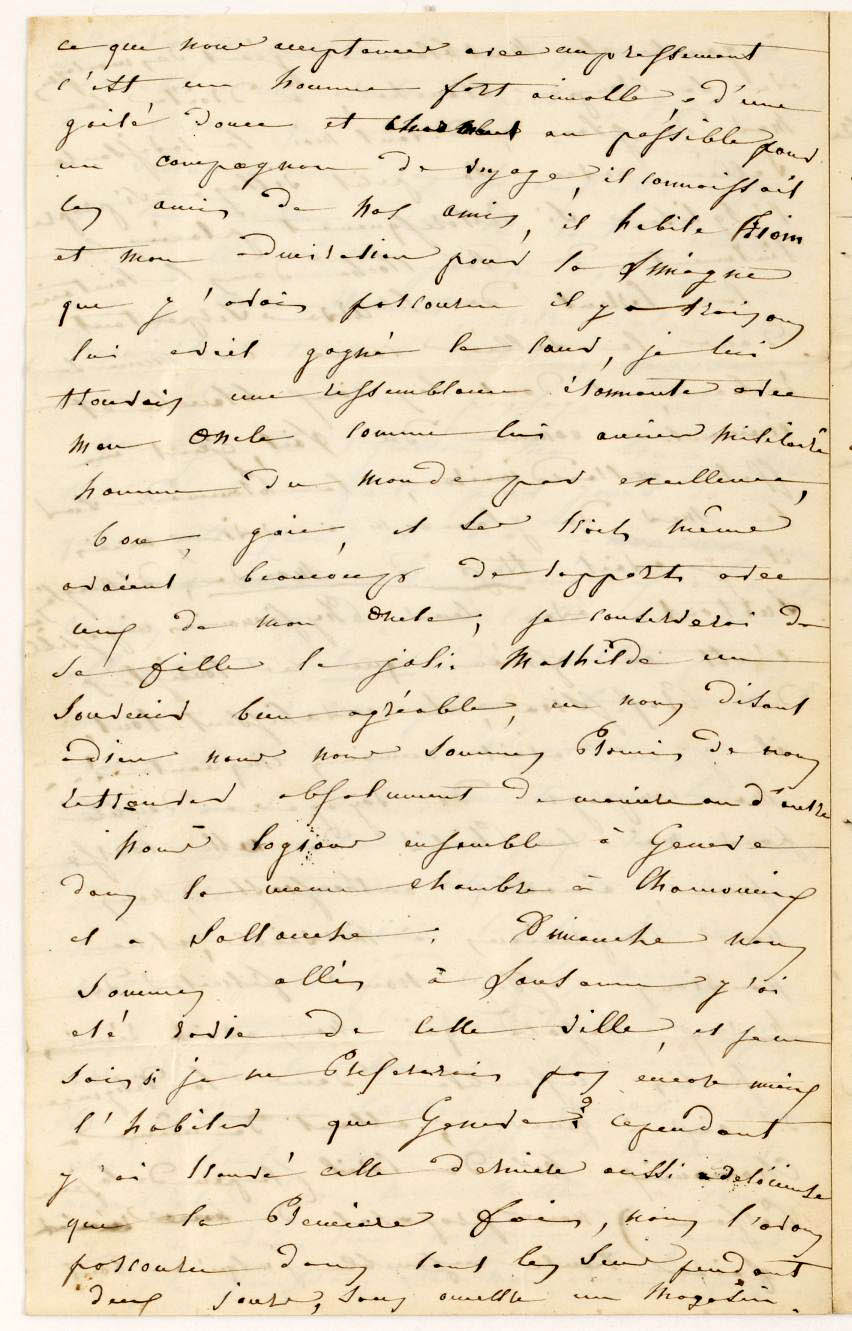 ce que nous acceptames avec empressement
c'est un homme fort aimable, d'une
gaité douce et au possible pour
un compagnon de voyage, il connaissait
les amis de nos amis, il habite Riom
et mon admiration pour la Limagne
que j'avais parcourue il y a trois ans
lui avait gagné le cœur, je lui
trouvais une ressemblance étonnante avec
mon oncle comme lui ancien militaire
homme du monde par excellence,
bon, gai, et ses traits même
avaient beaucoup de rapports avec
ceux de mon oncle, je conserverai de
sa fille la jolie Mathilde un
souvenir bien agréable, en nous disant
adieu nous nous sommes promis de nous
retrouver absolument de maniere ou d'autre
nous logions ensemble à Geneve
dans la meme chambre à Chamounix
et a Sallanche. Dimanche nous
sommes allés à Lausanne j'ai
eté ravie de cette ville, et je ne
sais si je ne prefererais pas encore mieux
l'habiter que Geneve? cependant
j'ai trouvé cette derniere aussi delicieuse
que la premiere fois, nous l'avons
parcourue dans tout les sens pendant
deux jours, sans omettre un magasin.